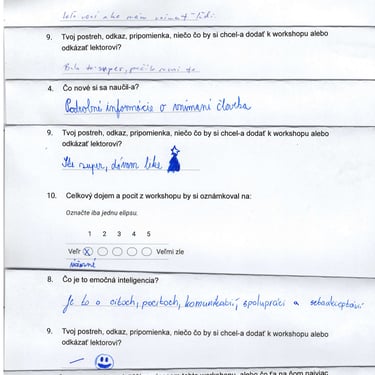 9. Tvoj postreh, odkaz, pripomienka, niečo čo by si chcel-a dodať k workshopu alebo
odkázať lektorovi?
Bilo to super,
4. Čo nové si sa naučil-a?
Podrobné informácie o vnímaní človeka
9. Tvoj postreh, odkaz, pripomienka, niečo čo by si chcel-a dodať k workshopu alebo
odkázať lektorovi?
super, dávam like
10. Celkový dojem a pocit z workshopu by si oznámkoval na:
Označte iba jednu elipsu.
1 2 3 4 5
Veľmi zle
8. Čo je to emočná inteligencia?
Je to o citoch, pocitoch, komunikácií, spolupráci a sebaakceptácií
9. Tvoj postreh, odkaz, pripomienka, niečo čo by si chcel-a dodať k workshopu alebo
odkázať lektorovi?